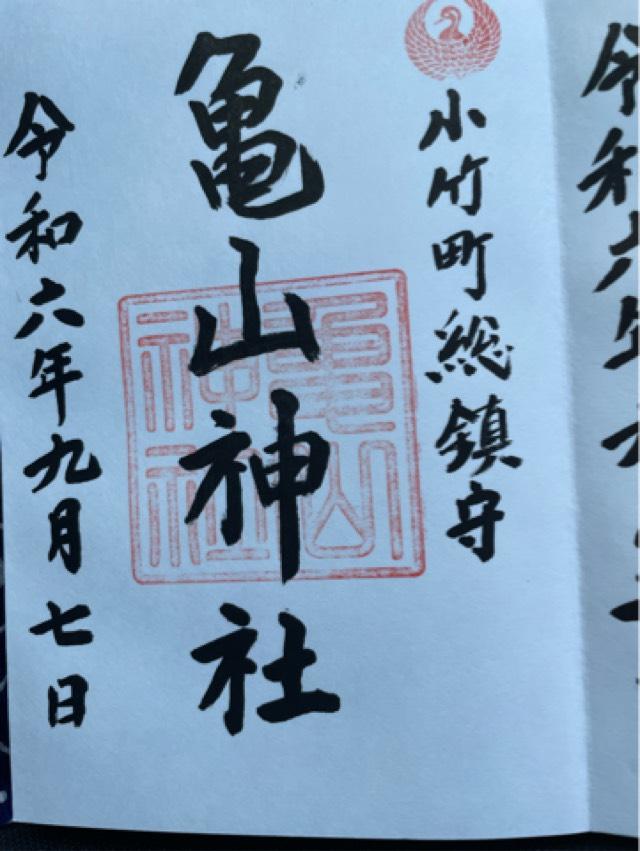 小竹町総鎮守
亀山神社
亀山
神社
令和六年九月七日